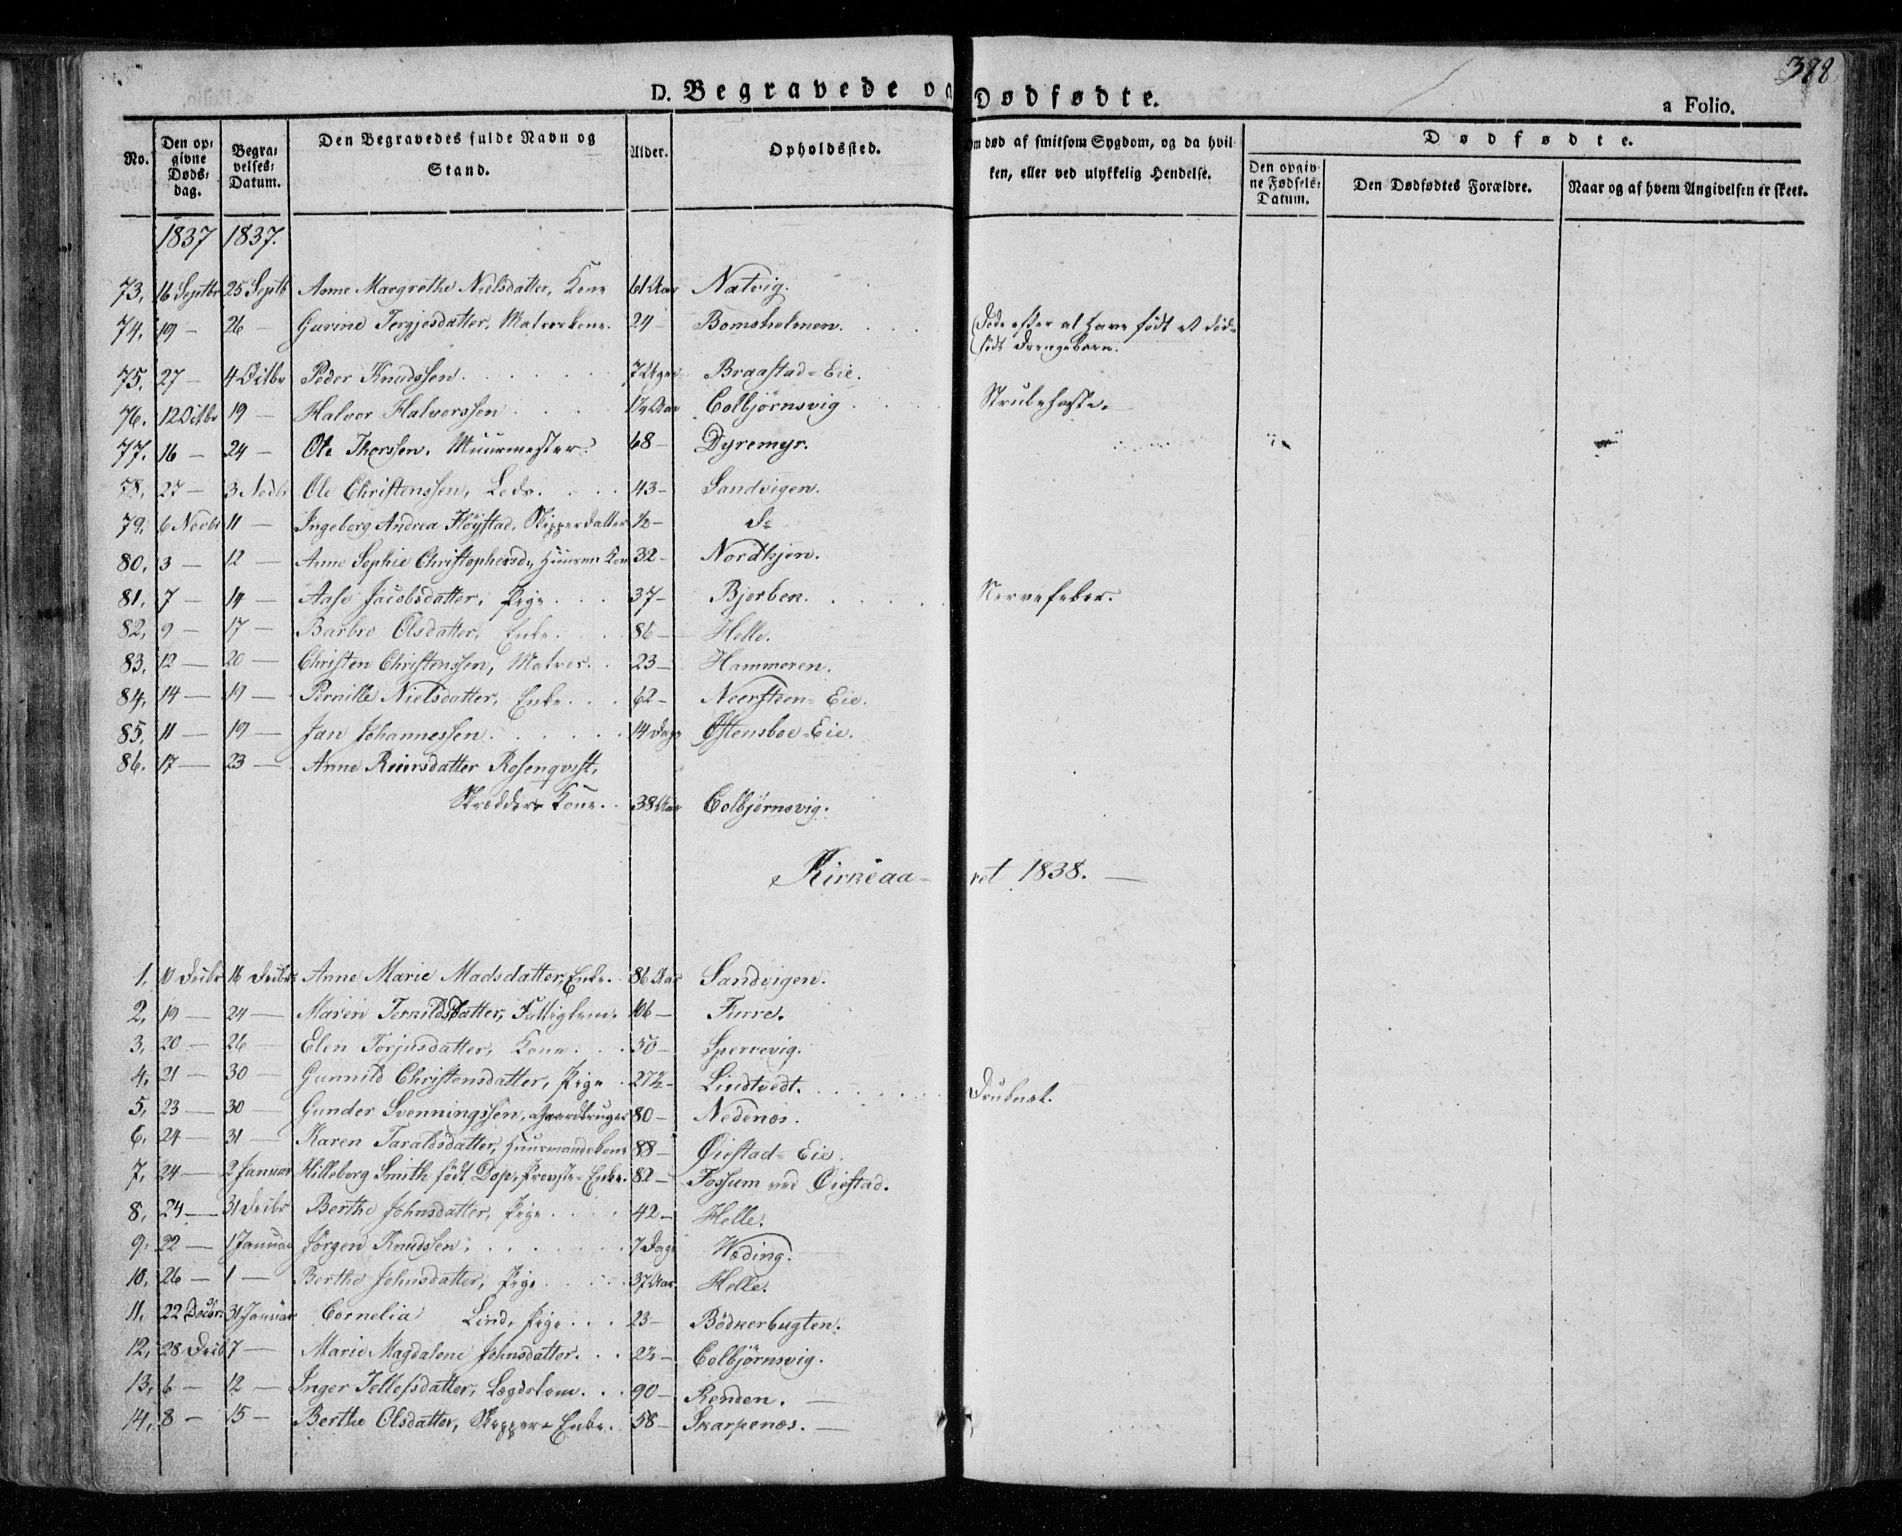 388.
D. Begravede og Dødfødte.
a Folio.
No.
Den op-
givne
Døds-
dag.
Begra-
velses-
Datum.
Den Begravedes fulde Navn og
Stand.
Alder.
Opholdssted.
Om død af smitsom Sygdom, og da hvil-
ken, eller ved ulykkelig Hendelse.
Dødfødte.
Den opgiv-
ne Fødsels-
Datum.
Den Dødfødtes Forældre.
Naar og af hvem Angivelsen er skeet.
1837 1837.
73. 16 Septbr 25 Septb Anne Margrethe Nielsdatter, Kone 61 Aar Natvig.
74. 19 — 26 — Gurine Tergjesdatter, Matroskone. 24 — Bomsholmen. Døde efter at have født et død-
født Drengebarn.
75. 27 — 4 Octbr Peder Knudssen 7 Uger Braastad-Eie.
76. 12 Octbr 19 — Halvor Halvorssen Aar Colbjørnsvig Strubehoste.
77. 16 — 24 — Ole Thorssen, Muurmester 68 — Dyremyr.
78. 27 — 3 Novbr Ole Christenssen, Lods. 43 — Sandvigen.
79. 6 Novbr 11 — Ingeborg Andrea Fløystad, Skipperdatter ½ — do
80. 3 — 12 — Anne Sophie Christophersd., Huusm: Kone 32 — Nordkjen.
81. 7 — 14 — Aase Jacobsdatter, Pige 37 — Bjerben. Nervefeber.
82. 9 — 17 — Barbro Olsdatter, Enke. 86 — Helle.
83. 12 — 20 — Christen Christenssen, Matros. 23 — Hammeren.
84. 14 — 19 — Pernille Nielsdatter, Enke. 62 — Neersteen-Eie.
85. 11 — 19 — Jan Johannessen. 14 Dage Østensboe-Eie.
86. 17 — 23 — Anne Reiersdatter Rosenqvist,
Skrædder Kone. 38 Aar Colbjørnsvig.
Kirkeaaret 1838.
1. 10 Decbr 16 Decbr Anne Marie Madsdatter, Enke. 86 Aar Sandvigen.
2. 19 — 24 — Maren Ternildsdatter, Fattiglem. 106 — Furre.
3. 20 — 26 — Elen Torjusdatter, Kone. 50 — Spervevig.
4. 21 — 30 — Gunnild Christensdatter, Pige 27½ — Lindtvedt. Druknet.
5. 23 — 30 — Gunder Svenningssen, Gaardbruger 80 — Nedenæs.
6. 24 — 31 — Karen Taraldsdatter, Huusmandskone 88 — Øiestad-Eie.
7. 24 — 2 Januar Hilleborg Smith født Dop, Provste-Enke. 82 — Fossum ved Øiestad.
8. 24 — 31 Decbr Berthe Johnsdatter, Pige 42 — Helle.
9. 22 — 1 Januar Jørgen Knudssen. 7 Dage Wæding.
10. 26 — 1 — Berthe Johnsdatter, Pige 37 Aar. Helle.
11. 22 Decbr. 31 Januar Cornelia Lind, Pige 23 — Bödkerbugten.
12. 28 Decb 7 — Marie Magdalene Johnsdatter. 2½ — Colbjørnsvig.
13. 6 — 12 — Inger Tellefsdatter, Lægdslem. 90 — Renden. —
14. 8 — 15 — Berthe Olsdatter, Skipper-Enke. 58 — Skarpenæs. —